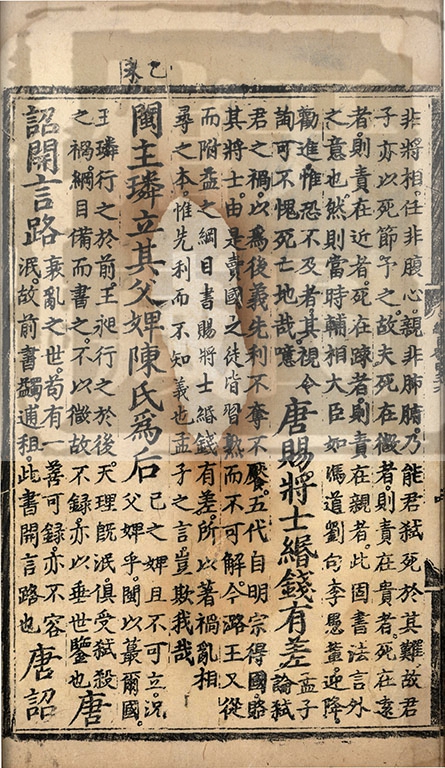 乙未
非將相任非腹心親非肺腑乃能君弑死於其難故君
子亦以死節予之故夫死在微者則責在貴者死在遠
者則責在近者死在踈者則責在親者此因書法言外
之意也然則當時輔相大臣如馮道劉昫李愚輩迎降
勸進惟恐不及者其視令
詢可不愧死亡地哉噫
唐賜將士緡錢有差
孟子
論弑
君之禍以為後義先利不奪不饜五代自明宗得國賂
其將士由是賣國之徒皆習熟而不可解今潞王又從
而附益之綱目書賜將士緡錢有差所以著禍亂相
尋之本惟先利而不知義也孟子之言豈欺我哉
閩主璘立其父婢陳氏為后
己之婢且不可立況
父婢乎閩以蕞爾國
王璘行之於前王昶行之於後天理既泯俱受弑殺
之禍綱目備而書之不以微故不錄亦以垂世鑒也
唐
詔開言路
衰亂之世苟有一善可錄亦不容
泯故前書蠲逋租此書開言路也
唐詔